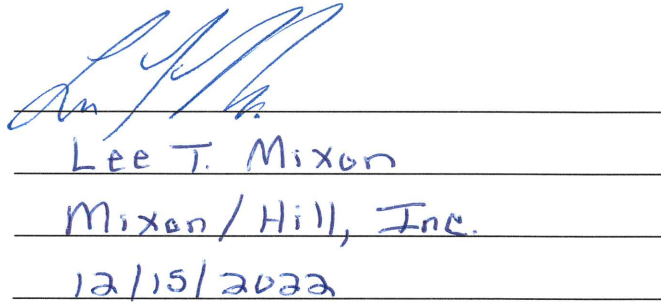 Lee T. Mixon
Mixon/Hill, Inc.
12/15/2022